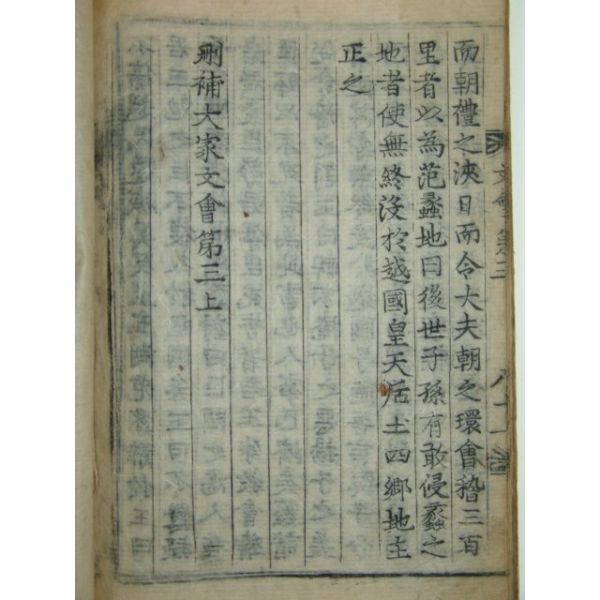 而朝禮之浹日而令大夫朝之環會稽三百
里者以為范蠡地曰後世子孫有敢侵蠡之
地者使無終沒於越國皇天后土四鄉地主
正之
刪補大家文會第三上
文會 卷三